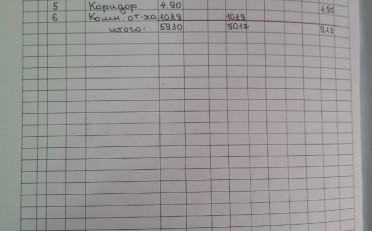 5 Коридор 4.90 4.90
6 Комн. от-ха 10.89 10.89
итого: 5930 5017 913